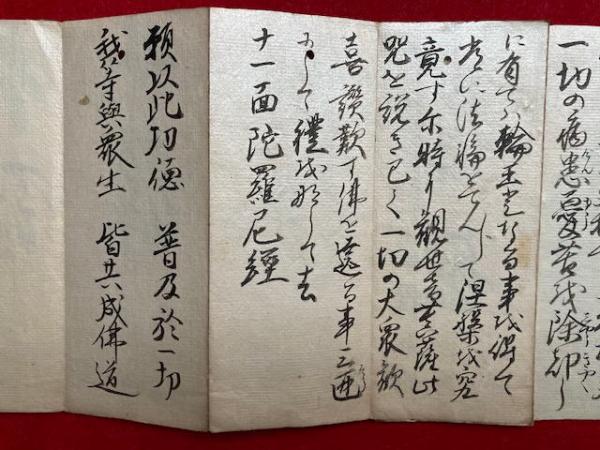 一切の病患憂苦を除却し
に有ては輪王となる事を得て
常に法輪をてんじて涅槃を究
竟す尓時に観世音菩薩此
咒を説き已て一切の大衆歓
喜讃歎す佛を遶る事三迊
にして礼を作して去
十一面陀羅尼経
願以此功徳　普及於一切
我等與衆生　皆共成佛道